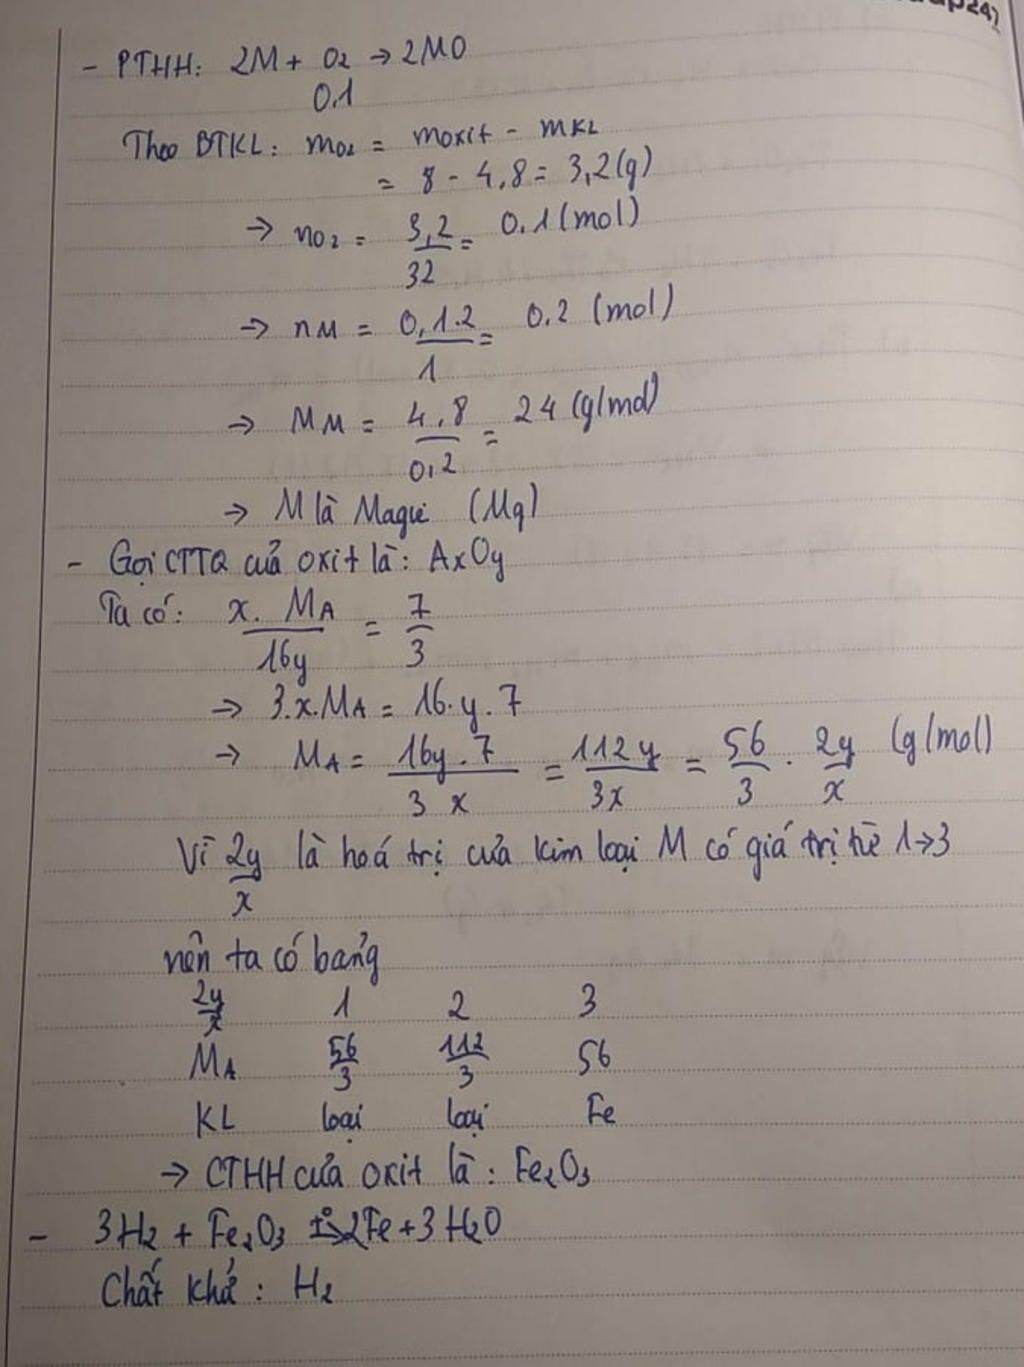 - PTHH: 2M + O2 → 2MO
0.1
Theo BTKL: mO2 = moxit - mKL
= 8 - 4,8 = 3,2(g)
→ nO2 = 3,2/32 = 0.1(mol)
→ nM = 0,1.2/1 = 0.2 (mol)
→ MM = 4,8/0,2 = 24 (g/mol)
→ M là Magie (Mg)
- Gọi CTTQ của oxit là: AxOy
Ta có: x. MA/16y = 7/3
→ 3.x.MA = 16.y.7
→ MA = 16y.7/3 x = 112y/3x = 56/3 . 2y/x (g/mol)
Vì 2y/x là hoá trị của kim loại M có giá trị từ 1→3
nên ta có bảng
2y/x 1 2 3
MA 56/3 112/3 56
KL loại loại Fe
→ CTHH của oxit là: Fe2O3
- 3H2 + Fe2O3 t°→ 2Fe + 3H2O
Chất khử: H2